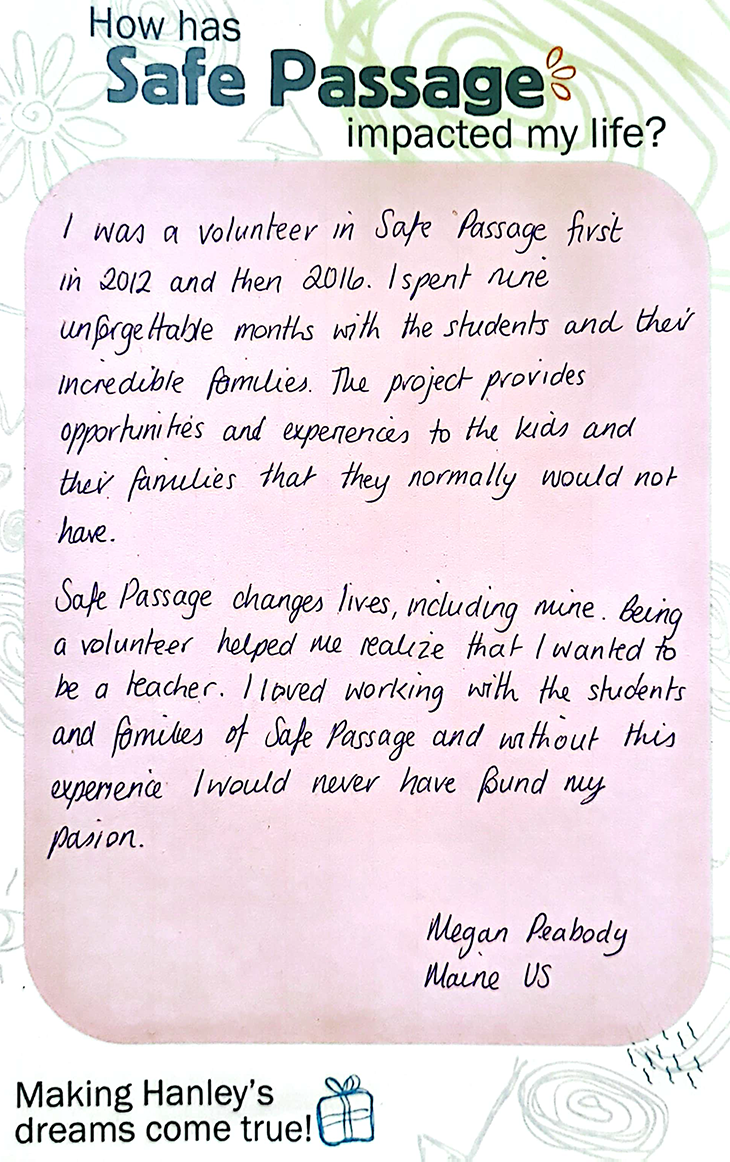 How has
Safe Passage
impacted my life?
I was a volunteer in Safe Passage first
in 2012 and then 2016. I spent nine
unforgettable months with the students and their
incredible families. The project provides
opportunities and experiences to the kids and
their families that they normally would not
have.
Safe Passage changes lives, including mine. Being
a volunteer helped me realize that I wanted to
be a teacher. I loved working with the students
and families of Safe Passage and without this
experience I would never have found my
pasion.
Megan Peabody
Maine US
Making Hanley's
dreams come true!